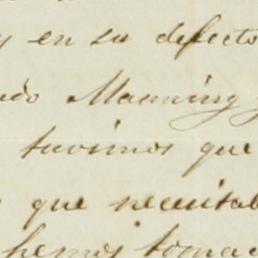 y en su defecto
Manning y
tuvimos que
que necesitab
hemos tomad